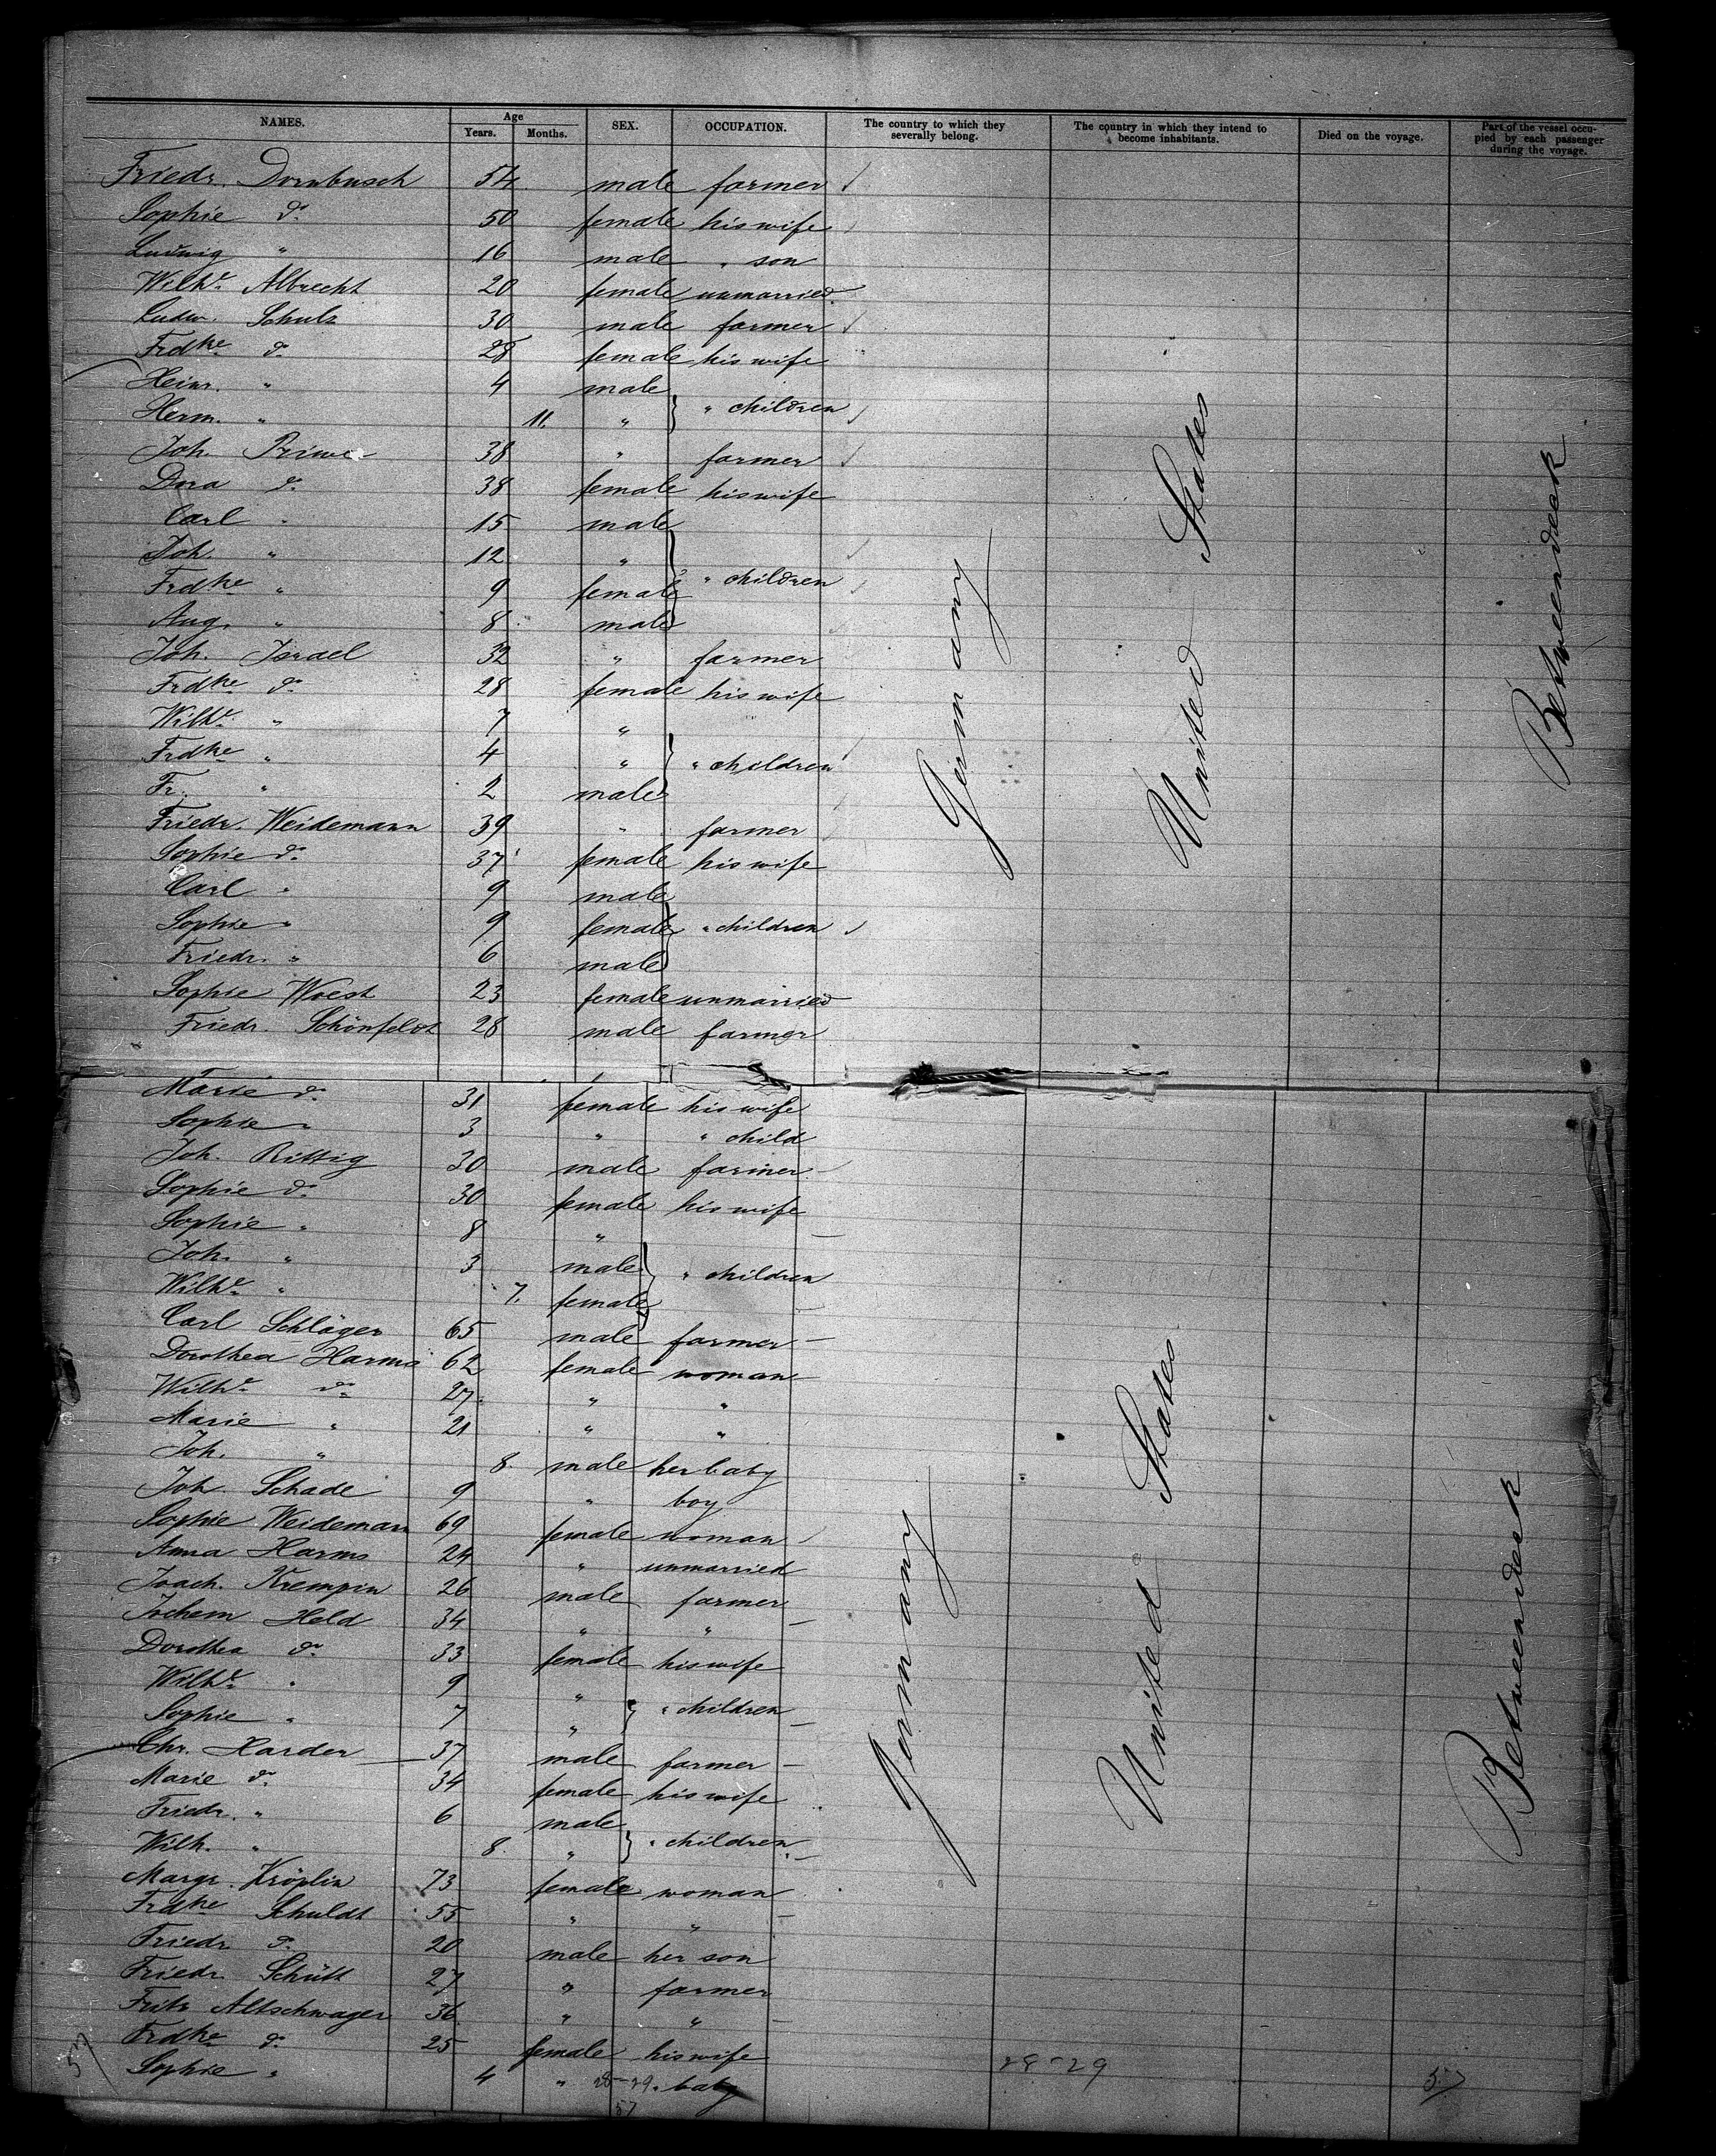 NAMES. Age Years. Months. SEX. OCCUPATION. The country to which they severally belong. The country in which they intend to become inhabitants. Died on the voyage. Part of the vessel occupied by each passenger during the voyage.
Friedr. Dornbusch 54 male farmer
Sophie do. 50 female his wife
Ludwig " 16 male " son
Wilhe. Albrecht 20 female unmarried
Ludw. Schulz 30 male farmer
Frdke do. 28 female his wife
Heinr. " 4 male
Herm. " 11. " } " children
Joh. Priwe 38 " farmer
Dora do. 38 female his wife
Carl " 15 male
Joh. " 12 "
Frdke " 9 female } " children
Aug. " 8 male
Joh. Israel 32 " farmer
Frdke do. 28 female his wife
Wilhe. " 7 "
Frdke " 4 " } " children
Fr. " 2 male
Friedr. Weidemann 39 " farmer
Sophie do. 37 female his wife
Carl " 9 male
Sophie " 9 female } " children
Friedr. " 6 male
Sophie Woest 23 female unmarried
Friedr. Schönfeldt 28 male farmer
Germany United States Betweendeck
Marie do. 31 female his wife
Sophie " 3 " " child
Joh. Rittig 30 male farmer
Sophie do. 30 female his wife
Sophie " 8 "
Joh. " 3 male } " children
Wilhe. " 7. female
Carl Schläger 65 male farmer
Dorothea Harms 62 female woman
Wilhe. do. 27. " "
Marie " 21 " "
Joh. " 8. male her baby
Joh. Schade 9 " boy
Sophie Weidemann 69 female woman
Anna Harms 24 " unmarried
Joach. Krempin 26 male farmer
Jochem Held 34 " "
Dorothea do. 33 female his wife
Wilhe. " 9 "
Sophie " 7 " } " children
Chr. Harder 37 male farmer
Marie do. 34 female his wife
Friedr. " 6 male
Wilh. " 8. " } " children
Margr. Kröplin 73 female woman
Frdke Schuldt 55 " "
Friedr. do. 20 male her son
Friedr. Schütt 27 " farmer
Fritz Altschwager 36 " "
Frdke do. 25 female his wife
Sophie " 4 " " baby
Germany United States Betweendeck
28-29
28-29
57
57
57